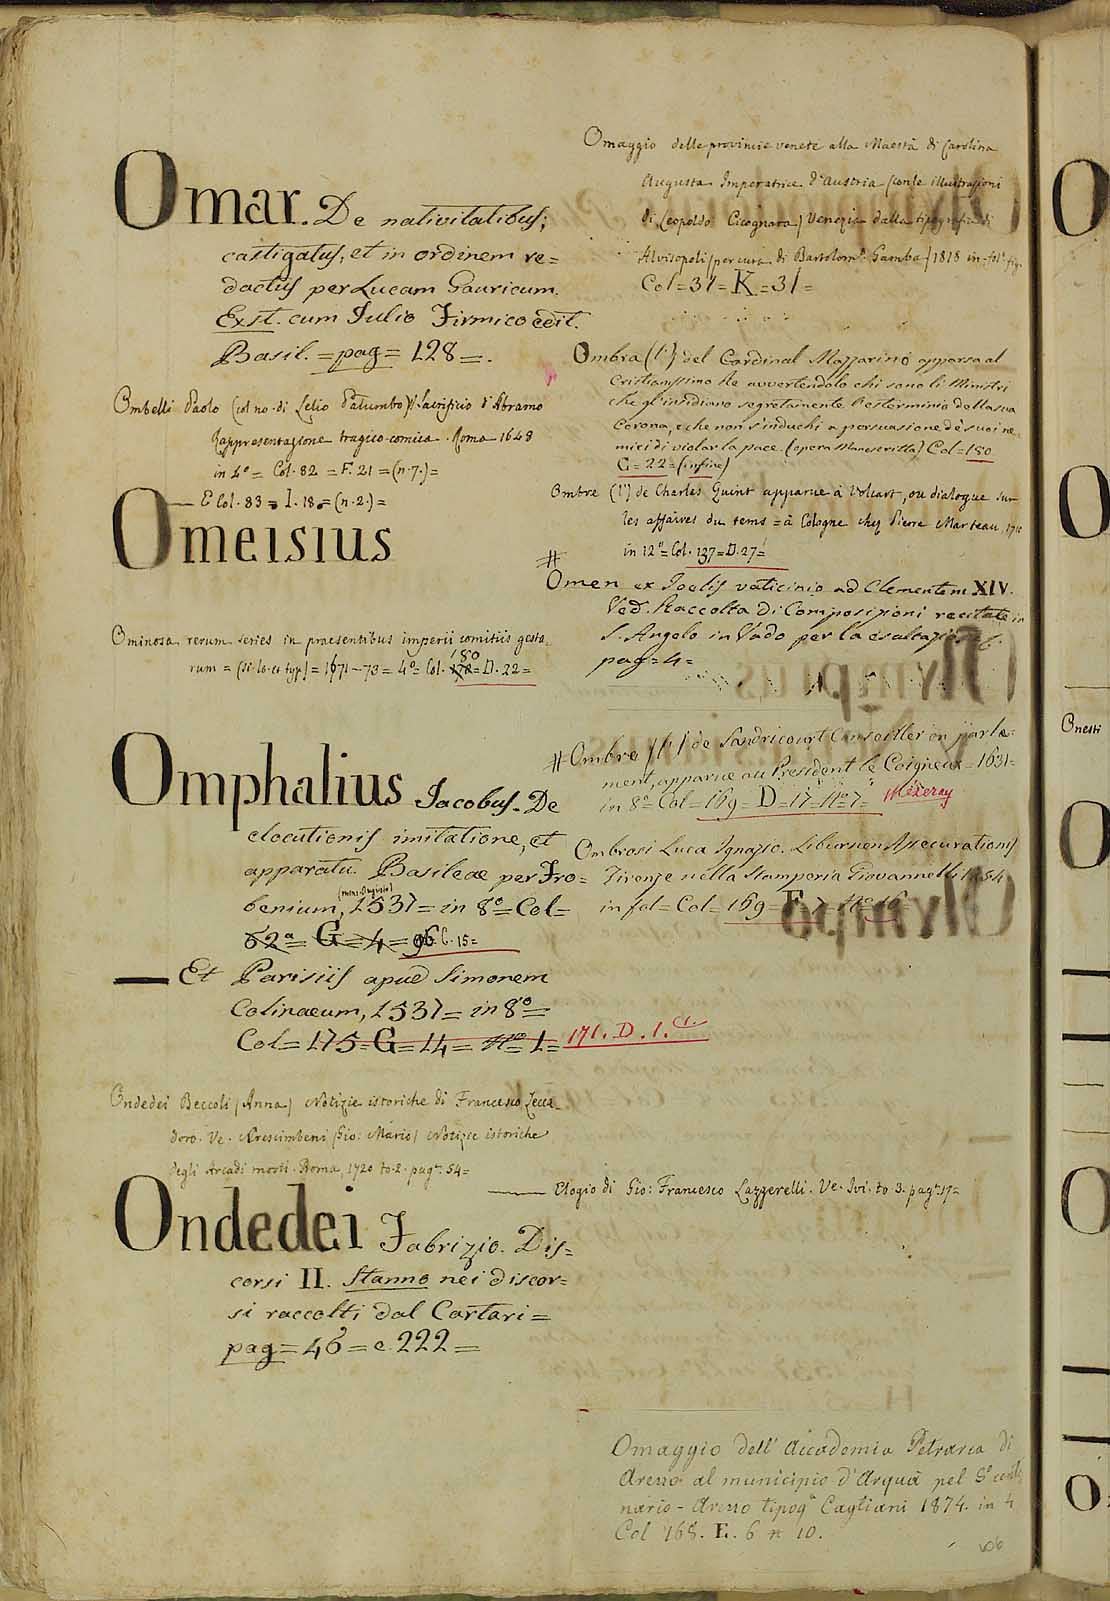 Omar. De nativitatibus;
castigatus, et in ordinem re=
dactus per Lucam Gauricum.
Exst. cum Julio Firmico edit.
Basil. = pag = 128 =.
Ombelli Paolo (col no. di Lelio Palumbo) Il Sacrificio d'Abramo
Rappresentazione tragico-comica. Roma 1648
in 4º = Col. 82 = F. 21 = (n. 7.) =
— E Col. 83 = I. 18 = (n. 2.) =
Omeisius
Ominosa rerum series in praesentibus imperii comitiis gesta=
180
rum = (si. lo. et typ.) = 1671-73 = 4º = Col. = D. 22 =
Omphalius Jacobus. De
elocutionis imitatione, et
apparatu. Basileae per Fro=
benium, 1537 = in 8º = Col =
62ª = G = 4 = 96 C. 15 =
— Et Parisiis apud Simonem
Colinaeum, 1537 = in 8º =
Col = 175 = G = 14 = Nº 1 = 171. D. 1.
Ondedei Beccoli (Anna) Notizie istoriche di Francesco Zecca
doro. Ve. Crescimbeni (Gio: Mario) Notizie istoriche
degli Arcadi morti. Roma, 1720 to. 2. pag. 54 =
— Elogio di Gio: Francesco Lazzerelli. Ve. Ivi. to 3. pag. 17 =
Ondedei Fabrizio. Dis=
corsi II. Stanno nei discor=
si raccolti dal Cartari =
pag = 46 = e 222 =
Omaggio delle provincie venete alla Maestà di Carolina
Augusta Imperatrice d'Austria (con le illustrazioni
di Leopoldo Cicognara) Venezia dalla tipografia di
Alvisopoli (per cura di Bartolomº Gamba) 1818 in-folº fig.
Col = 31 = K = 31 =
Ombra (l') del Cardinal Mazzarino apparsa al
Cristianissimo Re avvertendolo chi sono li Ministri
che gl'insidiano segretamente l'esterminio della sua
Corona, e che non s'induchi a persuasione de' suoi ne=
mici di violar la pace. (opera Manoscritta) Col = 180
G = 22 = (in fine)
Ombre (l') de Charles Quint apparue à Volcart, ou dialogue sur
les affaires du tems = à Cologne chez Pierre Marteau 1710
in 12º = Col. 137 = D. 27 =
# Omen ex Joelis vaticinio ad Clementem XIV.
Ved. Raccolta di Composizioni recitate in
S. Angelo in Vado per la esaltazio
pag = 4 =
# Ombre (l') de Sandricourt Conseiller en parle=
ment, apparue au President le Coigneux = 1631 =
in 8º = Col = 169 = D = 17 = Nº 7 = Mezeray
Ombrosi Luca Ignazio.
Firenze nella Stamperia Giovannelli
in fol = Col = 169 = E = 7 = Nº 16 =
Omaggio dell'Accademia Petrarca di
Arezzo al municipio d'Arquà pel 5º cente
nario - Arezzo tipogª Cagliani 1874. in 4
Col 168. E. 6 n 10.